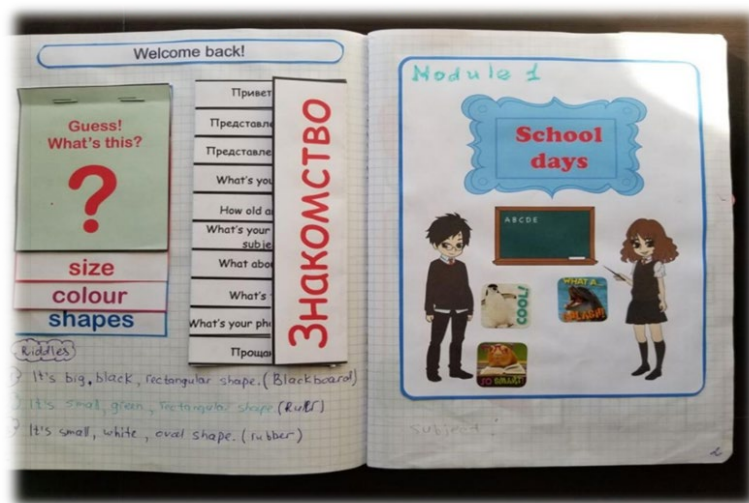 Welcome back!
Guess!
What's this?
?
size
colour
shapes
Привет
Представле
Представле
What's you
How old a
What's your
subje
What abo
What's
What's your ph
Проща
Знакомство
Riddles
It's big, black, rectangular shape. (Blackboard)
It's small, green, rectangular shape (Ruler)
It's small, white, oval shape. (rubber)
Module 1
School
days
A B C D E
COOL!
WHAT A...
SPLASH!
SO SMART!
Subject
2